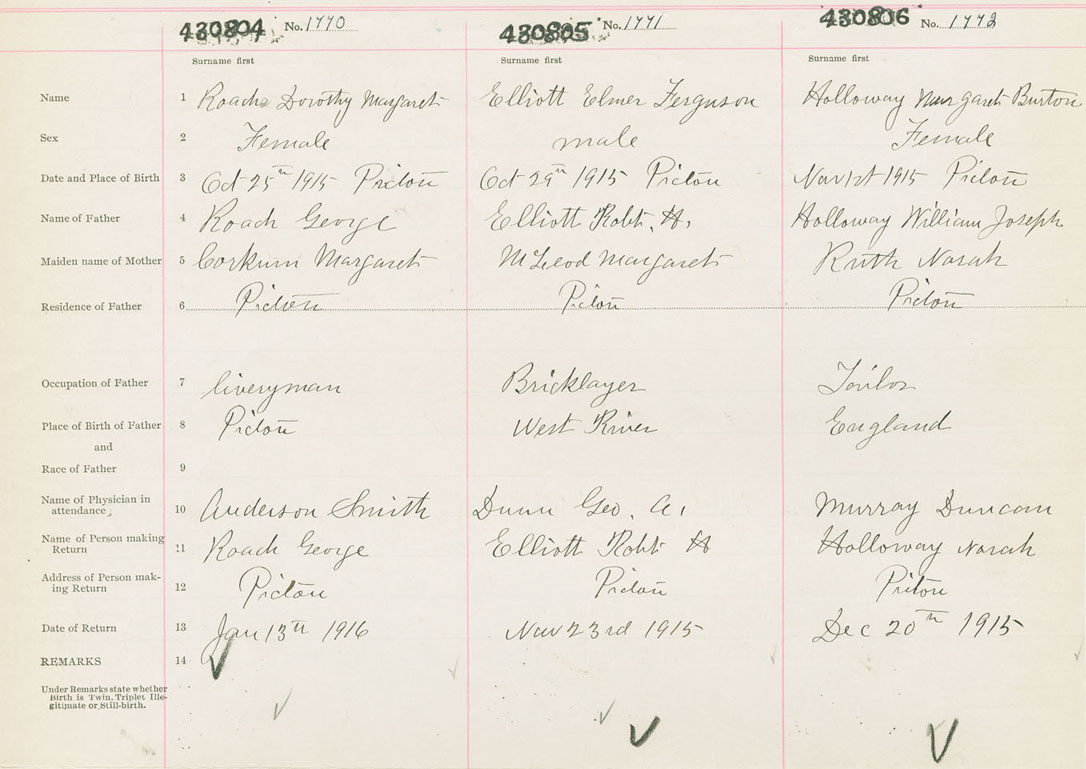 430804 No. 1770 430805 No. 1771 430806 No. 1772
Surname first Surname first Surname first
Name 1 Roach Dorothy Margaret Elliott Elmer Ferguson Holloway Margaret Burton
Sex 2 Female male Female
Date and Place of Birth 3 Oct 25th 1915 Pictou Oct 29th 1915 Pictou Nov 1st 1915 Pictou
Name of Father 4 Roach George Elliott Robt. H. Holloway William Joseph
Maiden name of Mother 5 Corkum Margaret McLeod Margaret Ruth Norah
Residence of Father 6 Pictou Pictou Pictou
Occupation of Father 7 liveryman Bricklayer Tailor
Place of Birth of Father 8 Pictou West River England
and
Race of Father 9
Name of Physician in
attendance, 10 Anderson Smith Dunn Geo. A. Murray Duncan
Name of Person making
Return 11 Roach George Elliott Robt H Holloway Norah
Address of Person mak-
ing Return 12 Pictou Pictou Pictou
Date of Return 13 Jan 13th 1916 Nov 23rd 1915 Dec 20th 1915
REMARKS 14
Under Remarks state whether
Birth is Twin, Triplet Ille-
gitimate or Still-birth.